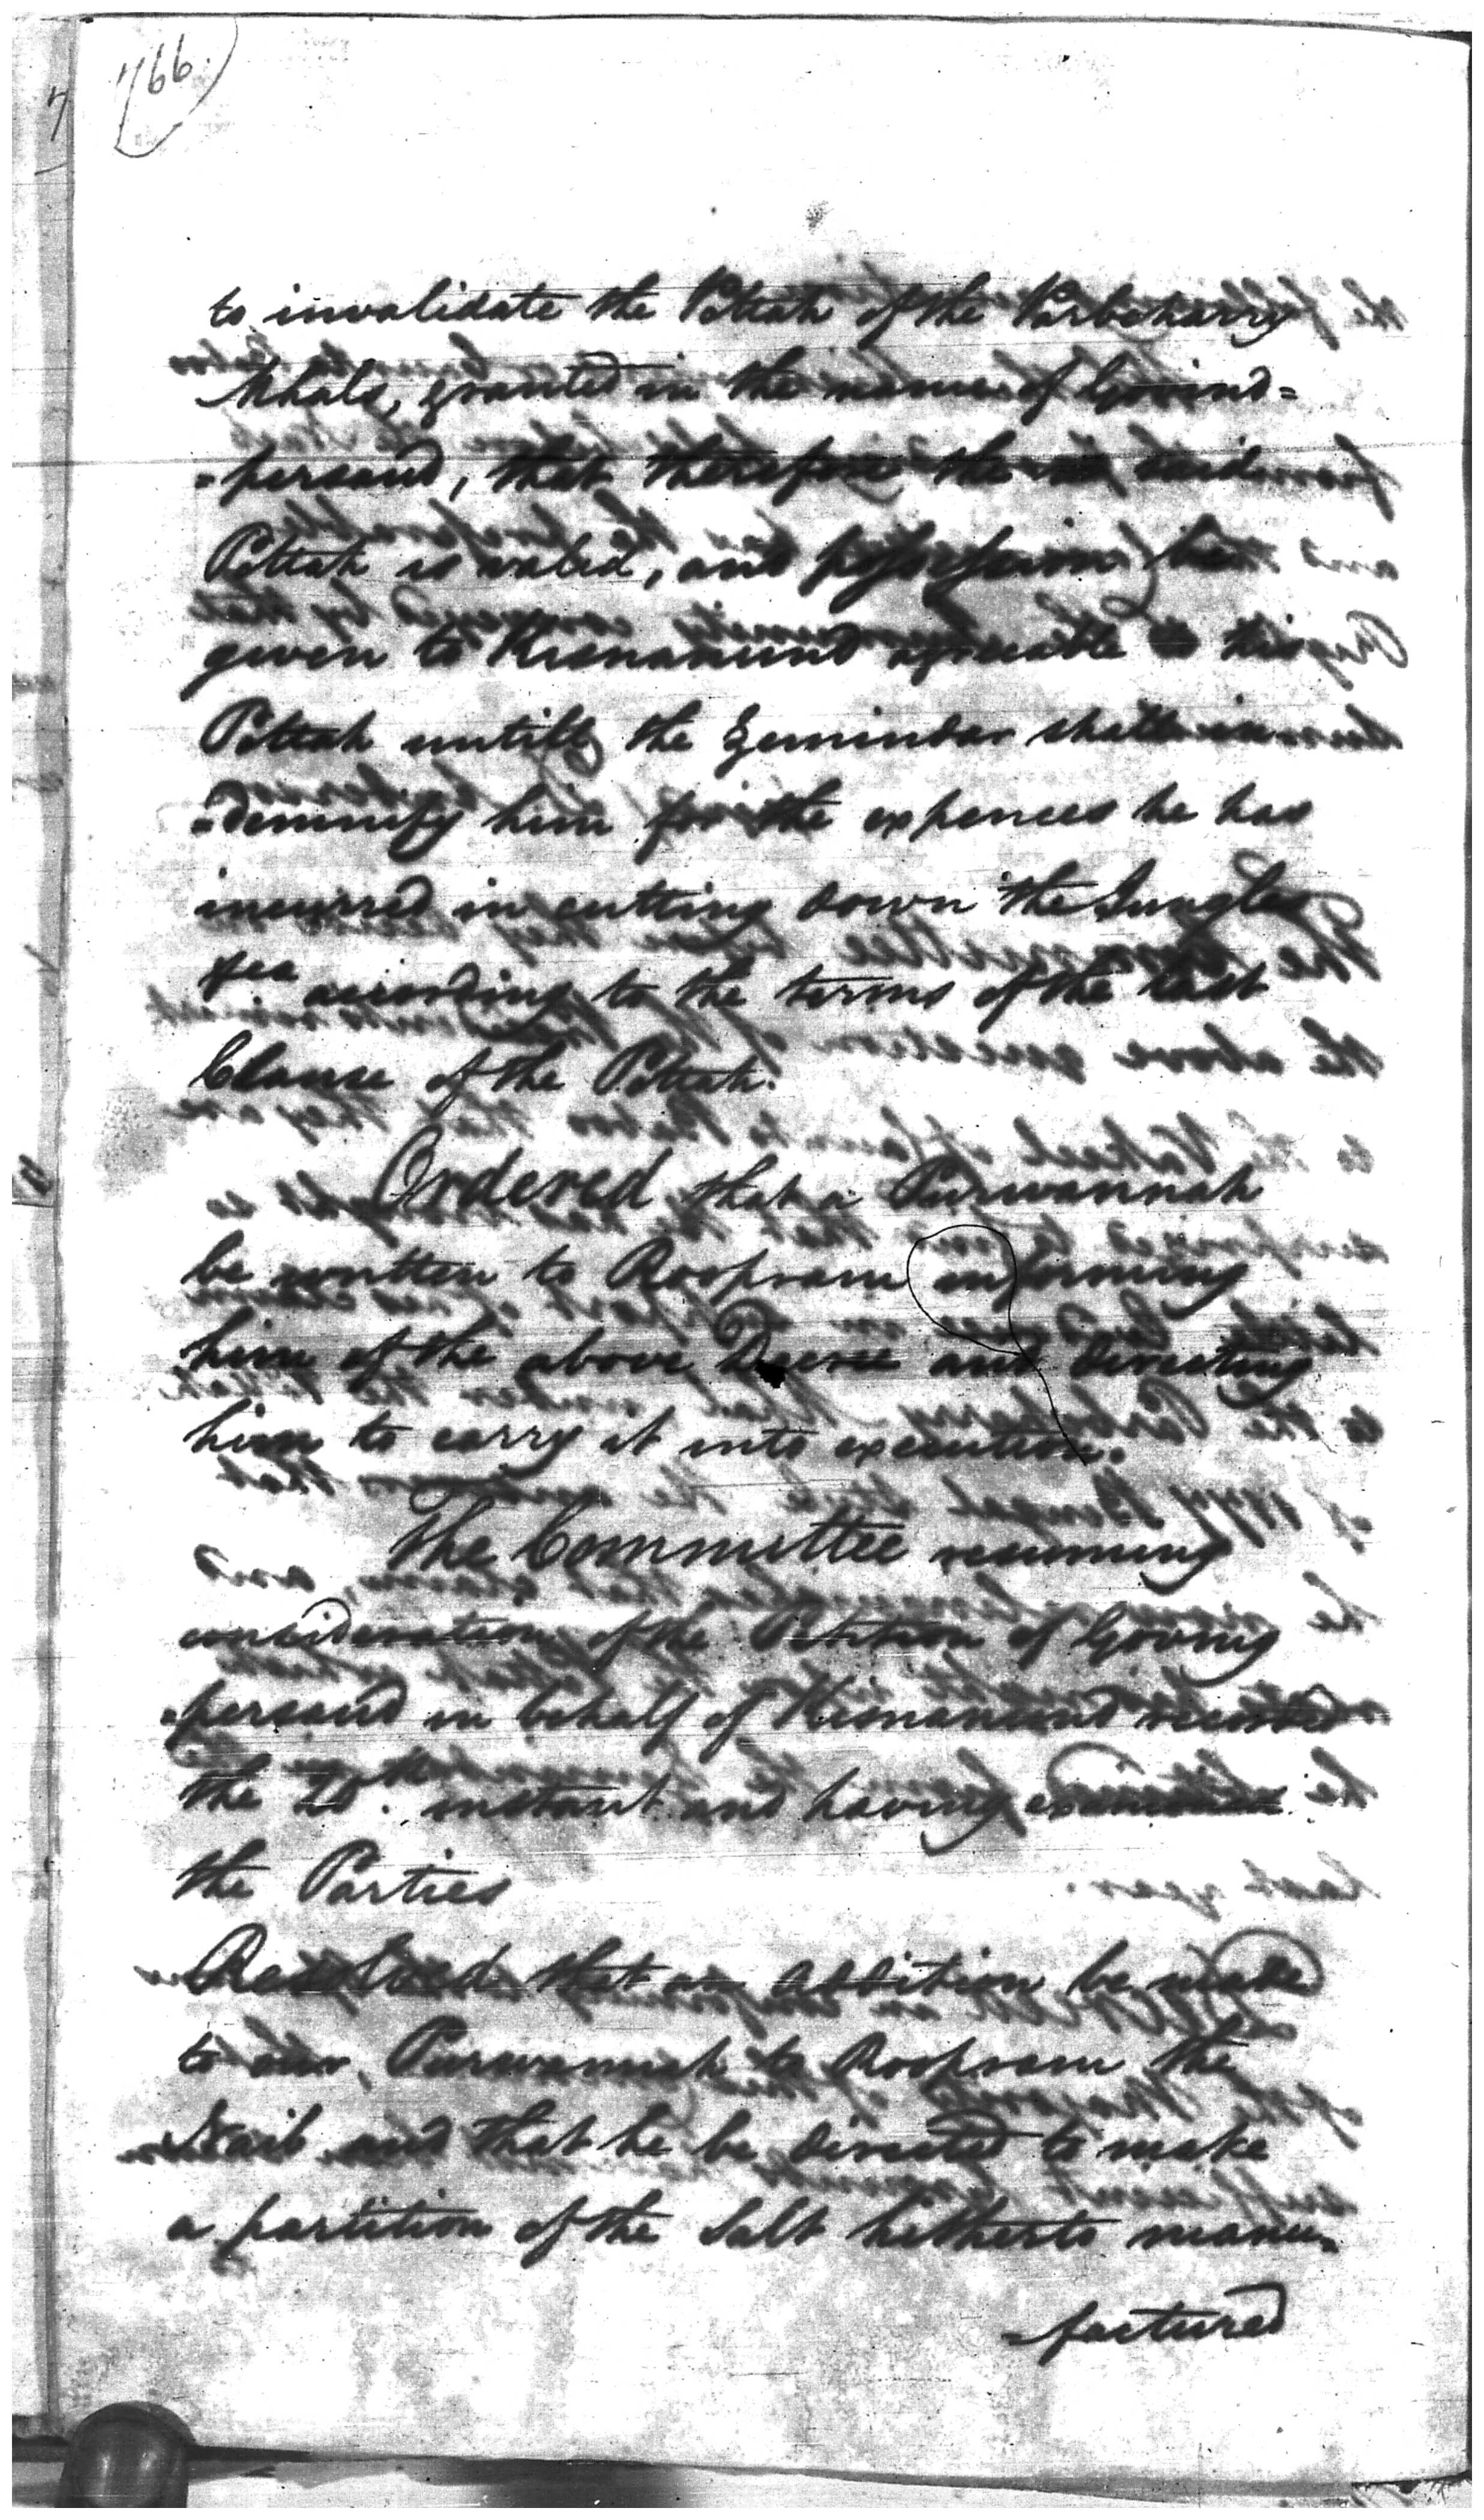 766.
to invalidate the Pottah of the Parbeharry
Mhals, granted in the name of Govind=
=persaud, that therefore the said
Pottah is valid, and possession be
given to Kisnanund agreeable to his
Pottah untill the Zemindar shall in
=demnify him for the expences he has
incurred in cutting down the Jungles
&ca according to the terms of the last
Clause of the Pottah.
Ordered that a Purwannah
be written to Roopram informing
him of the above Decree and directing
him to carry it into execution.
The Committee resuming
consideration of the Petition of Govind
=persaud in behalf of Kisnanund recorded
the 20th. instant and having examined
the Parties
Resolved that an addition be made
to our Purwannah to Roopram the
Naib and that he be directed to make
a partition of the Salt hetherto manu=
=factured